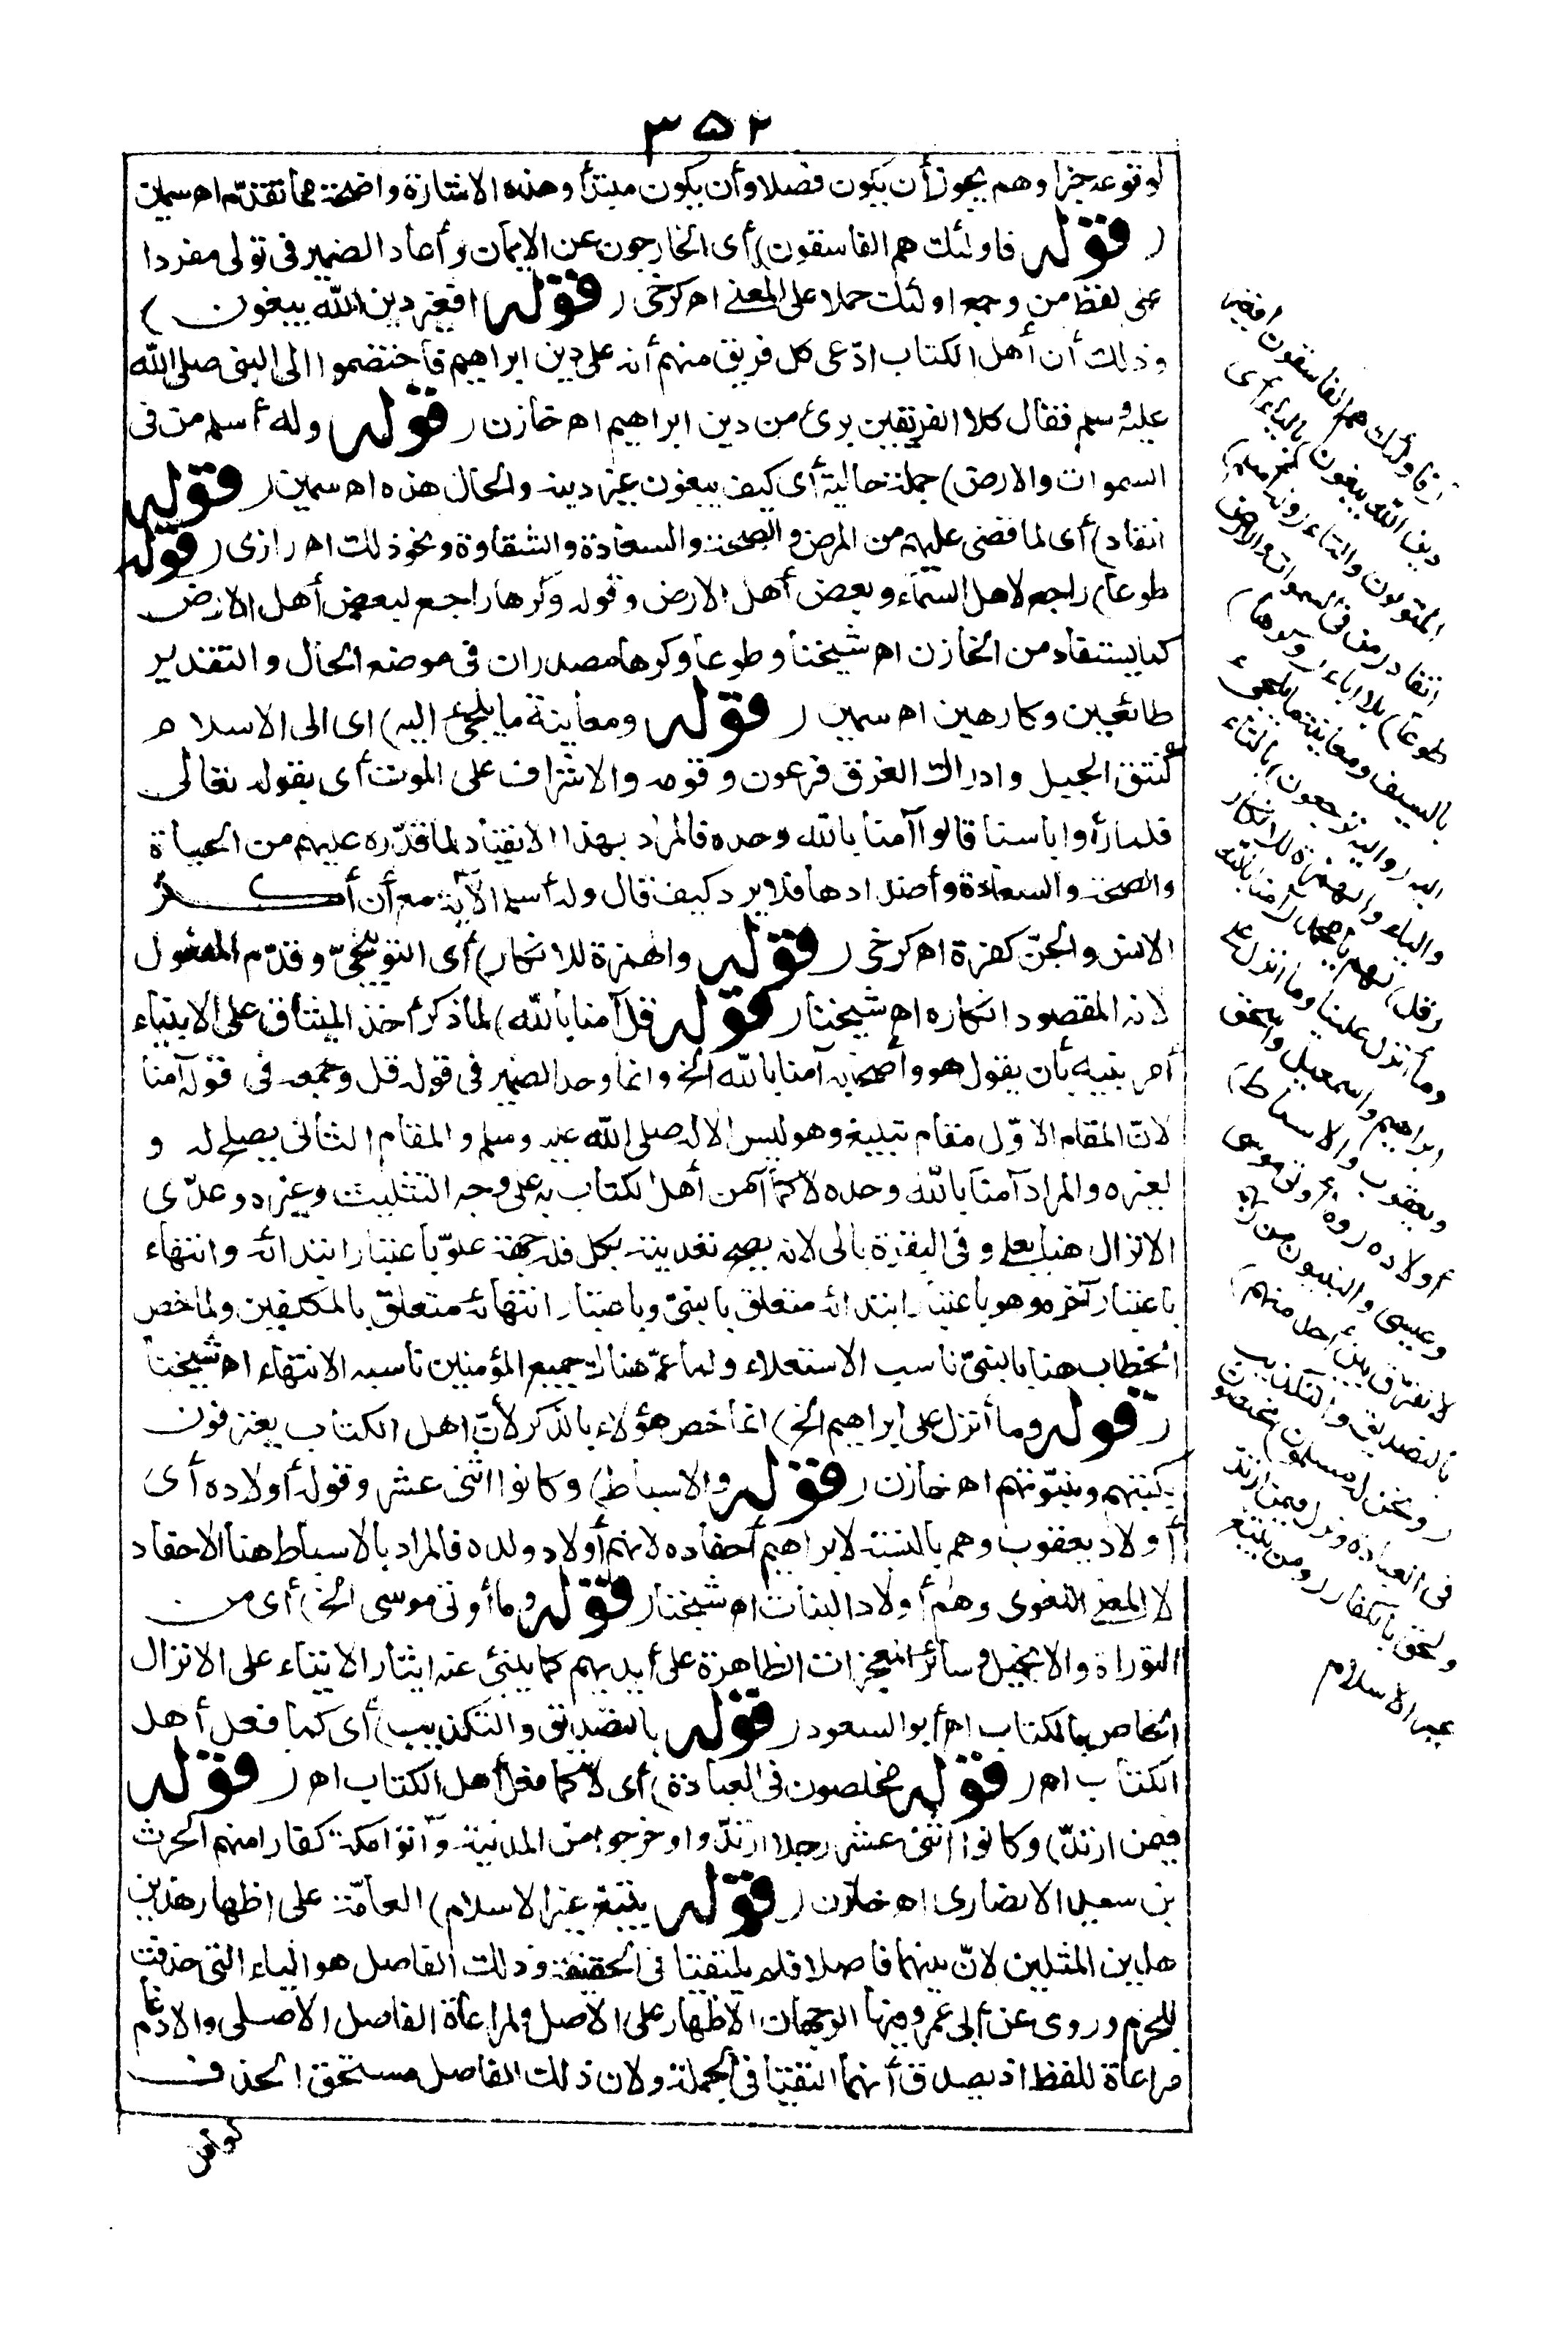 ٣٥٢
لوقوعه خبرا وهم يجوز أن يكون فصلا وأن يكون مبتدأ وهذه الاشارة واضحة مما تقدّم اه سمين
(قوله فاولئك هم الفاسقون) أى الخارجون عن الايمان وأعاد الضمير فى تولى مفردا
على لفظ من وجمع اولئك حملا على المعنى اه كرخى (قوله افغير دين الله يبغون)
وذلك أن أهل الكتاب ادّعى كل فريق منهم أنه على دين ابراهيم فاختصموا الى النبى صلى الله
عليه وسلم فقال كلا الفريقين برئ من دين ابراهيم اه خازن (قوله وله أسلم من فى
السموات والارض) جملة حالية أى كيف يبغون غير دينه والحال هذه اه سمين (قوله
انقاد) أى لما قضى عليهم من المرض والصحة والسعادة والشقاوة ونحو ذلك اه رازى (قوله
طوعا) راجع لاهل السماء وبعض أهل الارض وقوله وكرها راجع لبعض أهل الارض
كما يستفاد من الخازن اه شيخنا وطوعا وكرها مصدران فى موضع الحال والتقدير
طائعين وكارهين اه سمين (قوله ومعاينة ما يلجئ اليه) اى الى الاسلام
كنتق الجبل وادراك الغرق فرعون وقومه والاشراف على الموت أى بقوله تعالى
فلما رأوا باسنا قالوا آمنا بالله وحده فالمراد بهذا الانقياد لما قدّره عليهم من الحياة
والصحة والسعادة وأضدادها فلا يرد كيف قال وله أسلم الآية مع أن أكثر
الانس والجنّ كفرة اه كرخى (قوله والهمزة للانكار) أى التوبيخىّ وقدّم المفعول
لانه المقصود انكاره اه شيخنا (قوله قل آمنا بالله) لما ذكر أخذ الميثاق على الانبياء
أمر نبيه بأن يقول هو وأصحابه آمنا بالله الخ وانما وحد الضمير فى قوله قل وجمعه فى قوله آمنا
لانّ المقام الاوّل مقام تبليغ وهو ليس الا له صلى الله عليه وسلم والمقام الثانى يصلح له و
لغيره والمراد آمنا بالله وحده لا كما آمن أهل الكتاب به على وجه التثليث وغيره وعدّى
الانزال هنا بعلى وفى البقرة بالى لانه يصح تعديته بكل فله جهة علوّ باعتبار ابتدائه وانتهاء
باعتبار آخره وهو باعتبار ابتدائه متعلق بالنبىّ وباعتبار انتهائه متعلق بالمكلفين ولما خص
الخطاب هنا بالنبىّ ناسب الاستعلاء ولما عمّ هناك جميع المؤمنين ناسبه الانتهاء اه شيخنا
(قوله وما أنزل على ابراهيم الخ) انما خص هؤلاء بالذكر لأنّ اهل الكتاب يعترفون
بكتبهم وبنبوّتهم اه خازن (قوله والاسباط) وكانوا اثنى عشر وقوله أولاده أى
أولاد يعقوب وهم بالنسبة لابراهيم أحفاده لانهم أولاد ولده فالمراد بالاسباط هنا الاحفاد
لا المعنى اللغوى وهم أولاد البنات اه شيخنا (قوله وما أوتى موسى الخ) أى من
التوراة والانجيل وسائر المعجزات الظاهرة على أيديهم كما ينبئ عنه ايثار الايتاء على الانزال
الخاص بالكتاب اه أبو السعود (قوله بالتصديق والتكذيب) أى كما فعل أهل
الكتاب اه (قوله مخلصون فى العبادة) أى لا كما فعل أهل الكتاب اه (قوله
فيمن ارتدّ) وكانوا اثنى عشر رجلا ارتدّوا وخرجوا من المدينة وأتوا مكة كفارا منهم الحرث
بن سعيد الانصارى اه خازن (قوله يبتغ غير الاسلام) العامّة على اظهار هذين
هذين المثلين لانّ بينهما فاصلا فلم يلتقيا فى الحقيقة وذلك الفاصل هو الياء التى حذفت
للجزم وروى عن أبى عمرو فيها الوجهان الاظهار على الاصل ولمراعاة الفاصل الاصلى والادغام
مراعاة للفظ اذ يصدق أنهما التقيا فى الجملة ولان ذلك الفاصل مستحق الحذف
(فاولئك هم الفاسقون افغير
دين الله يبغون) بالياء أى
المتولون والتاء (وله أسلم)
انقاد (من فى السموات والارض
طوعا) بلا اباء (وكرها)
بالسيف ومعاينة ما يلجئ
اليه (واليه ترجعون) بالتاء
والياء والهمزة للانكار
(قل) لهم يا محمد (آمنا بالله
وما أنزل علينا وما أنزل على
ابراهيم واسمعيل واسحق
ويعقوب والاسباط)
أولاده (وما أوتى موسى
وعيسى والنبيون من ربهم
لا نفرّق بين أحد منهم)
بالتصديق والتكذيب
(ونحن له مسلمون) مخلصون
فى العبادة ونزل فيمن ارتدّ
ولحق بالكفار (ومن يبتغ
غير الاسلام